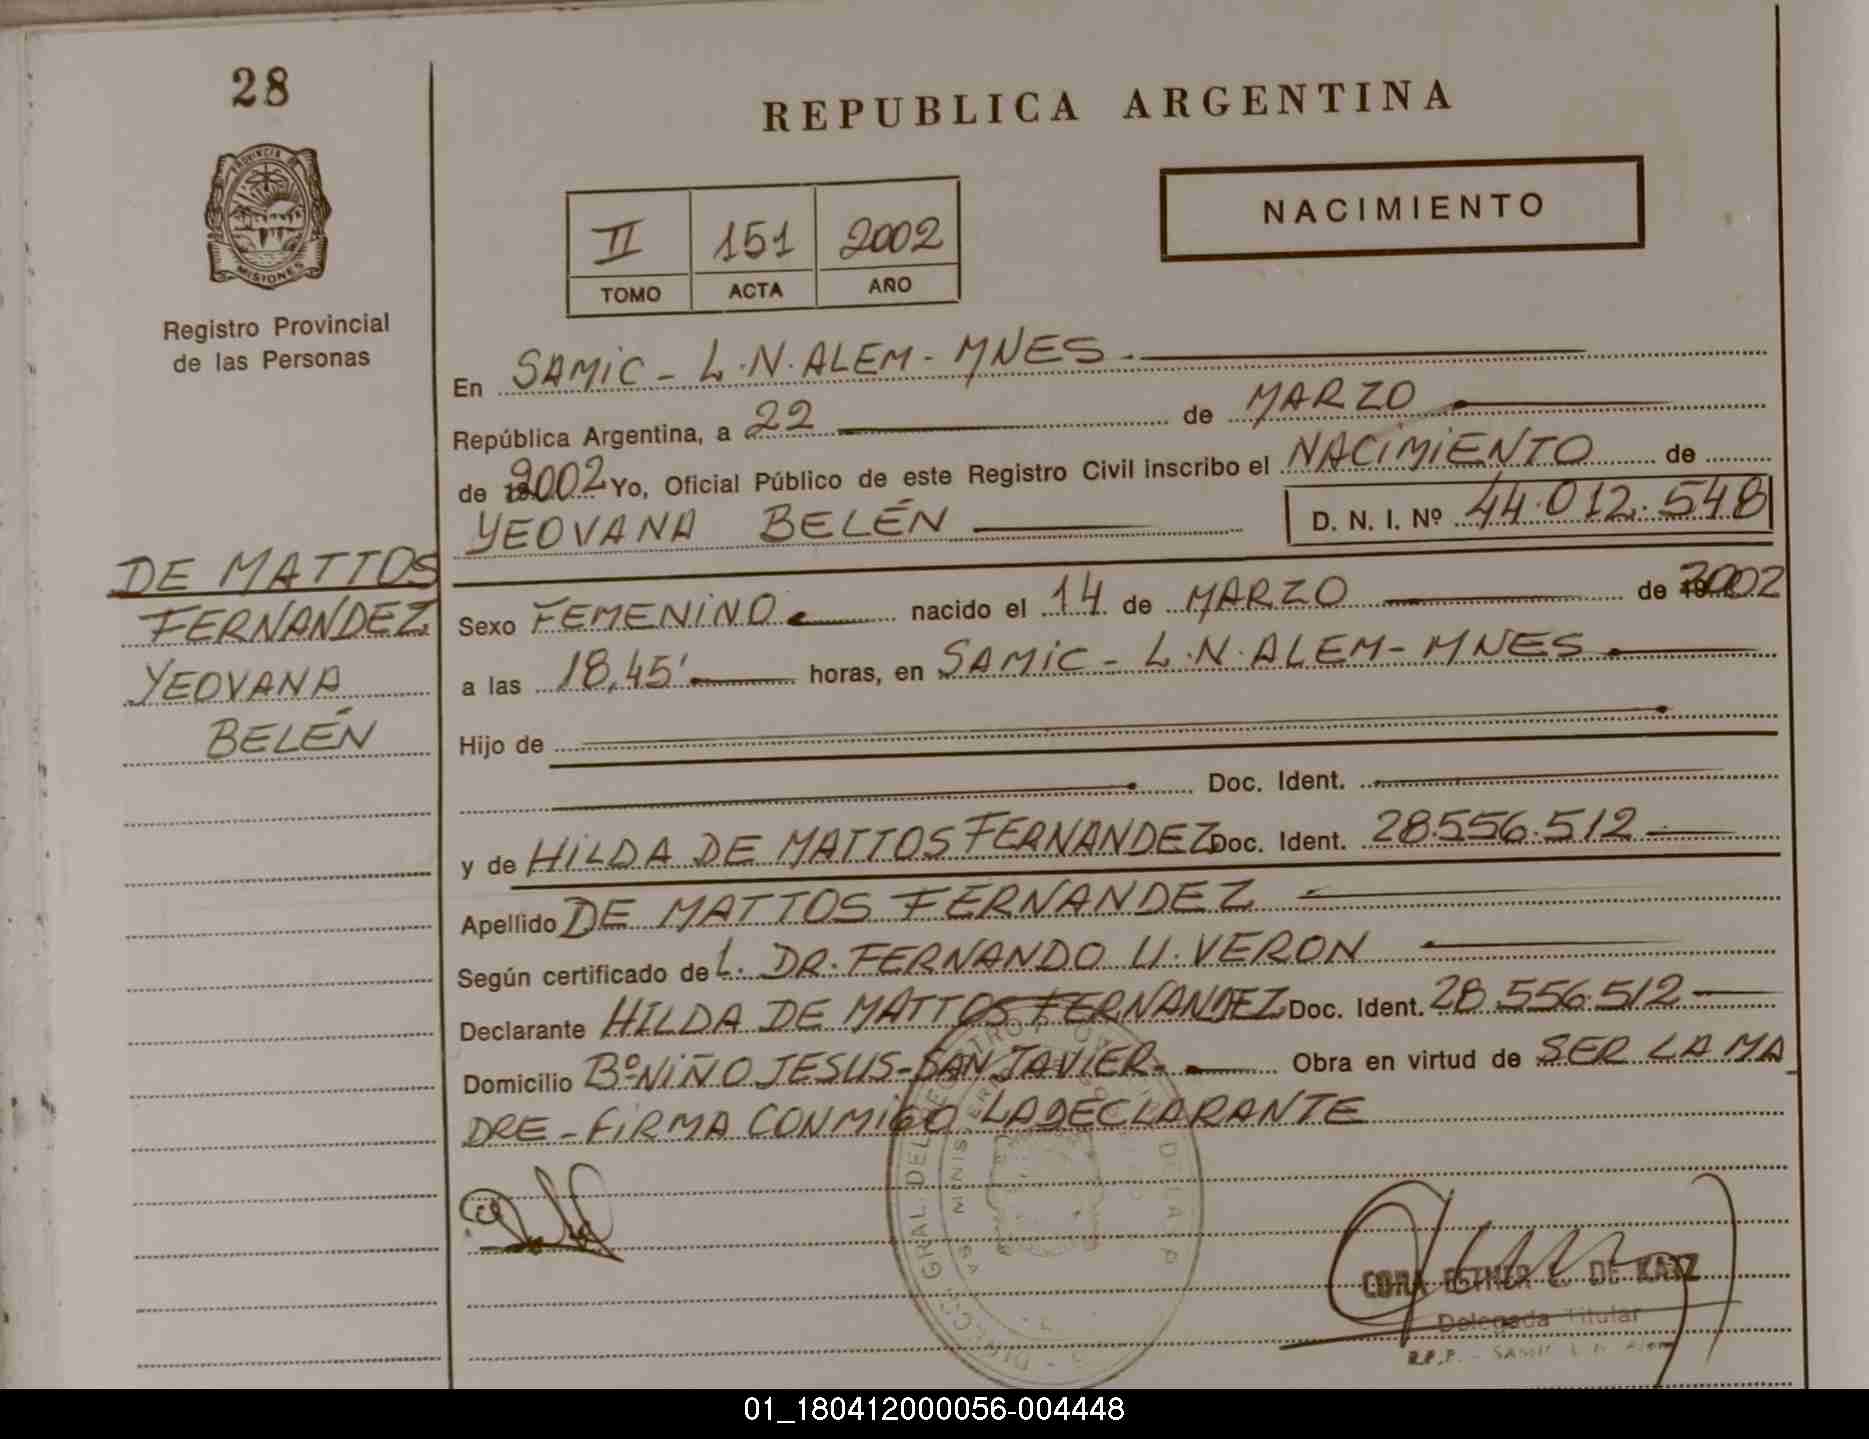 28
PROVINCIA DE
MISIONES
Registro Provincial
de las Personas
DE MATTOS
FERNANDEZ
YEOVANA
BELÉN
REPUBLICA ARGENTINA
II 151 2002
TOMO ACTA AÑO
NACIMIENTO
En SAMIC - L.N.ALEM - MNES.
República Argentina, a 22 de MARZO
de 2002 Yo, Oficial Público de este Registro Civil inscribo el NACIMIENTO de
YEOVANA BELÉN D. N. I. Nº 44.012.548
Sexo FEMENINO nacido el 14 de MARZO de 2002
a las 18,45' horas, en SAMIC - L.N.ALEM - MNES
Hijo de
Doc. Ident.
y de HILDA DE MATTOS FERNANDEZ Doc. Ident. 28.556.512
Apellido DE MATTOS FERNANDEZ
Según certificado de L. DR. FERNANDO U. VERON
Declarante HILDA DE MATTOS FERNANDEZ Doc. Ident. 28.556.512
Domicilio Bº NIÑO JESUS - SAN JAVIER - Obra en virtud de SER LA MA_
DRE - FIRMA CONMIGO LA DECLARANTE
CORA ESTHER E. DE KATZ
Delegada Titular
R.P.P. - SAMIC L. N. Alem
01_180412000056-004448